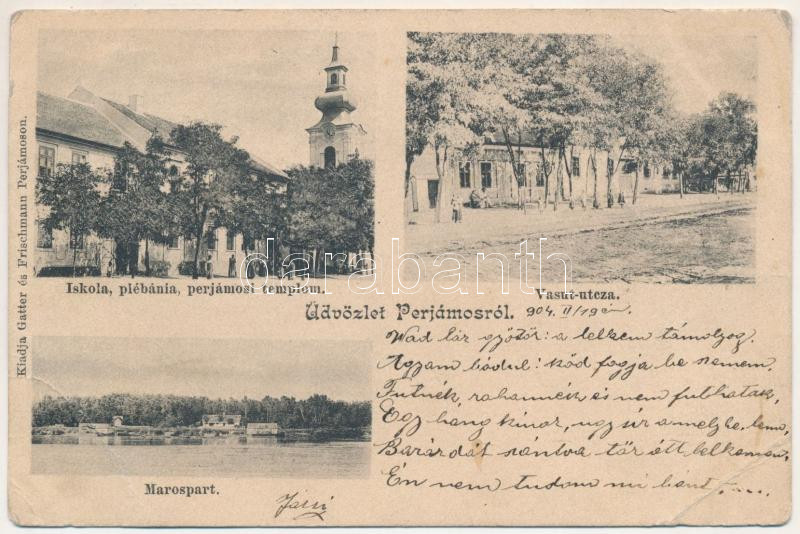 Kiadja Gatter és Frischmann Perjámoson.
Iskola, plébánia, perjámosi templom.
Vasút-utcza.
Üdvözlet Perjámosról.
904. II/19 én.
darabanth
Vad láz gyötör: a lelkem támolyog.
Agyam bódul: köd fogja be szemem.
Futnék, rohannék és nem futhatok,
Egy hang kínoz, úgy sír a mélybe, benn,
Barázdát szántva tör át lelkemen,
Én nem tudom mi bánt.....
Marospart.